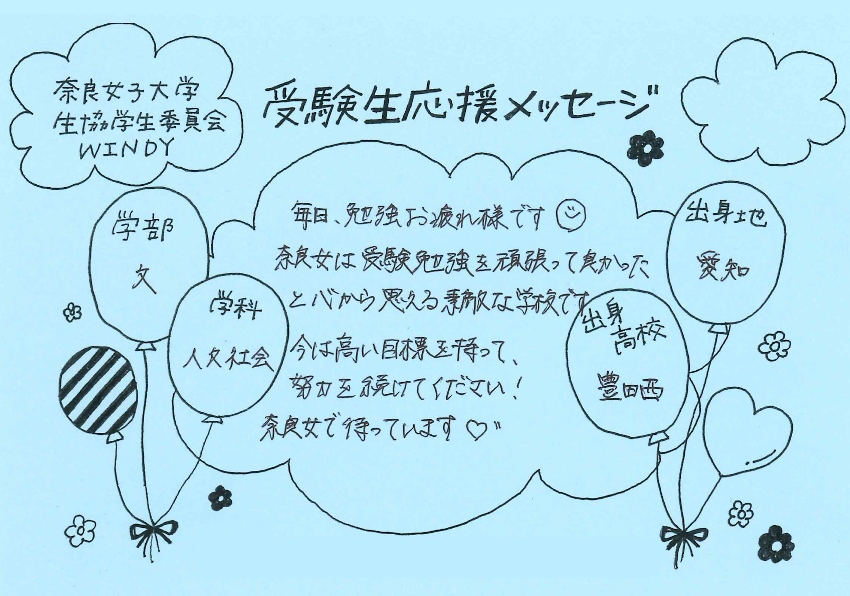 奈良女子大学
生協学生委員会
WINDY
受験生応援メッセージ
学部
文
学科
人文社会
毎日、勉強お疲れ様です
奈良女は受験勉強を頑張って良かった
と心から思える素敵な学校です
今は高い目標を持って、
努力を続けてください!
奈良女で待っています♡
出身地
愛知
出身
高校
豊田西